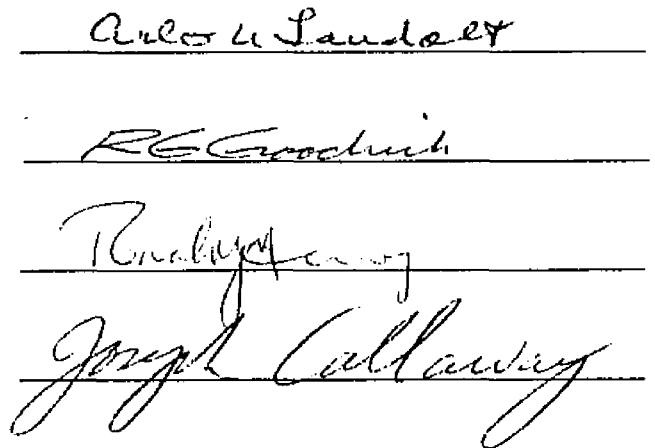 Arlo U Landolt
RG Goodrich
Joseph Callaway